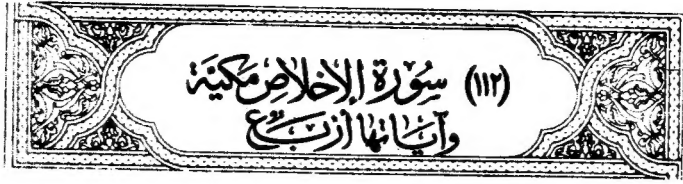 (١١٢) سُورَة الإِخْلَاصِ مَكِيَّة
وَآيَاتهَا أَرْبَع